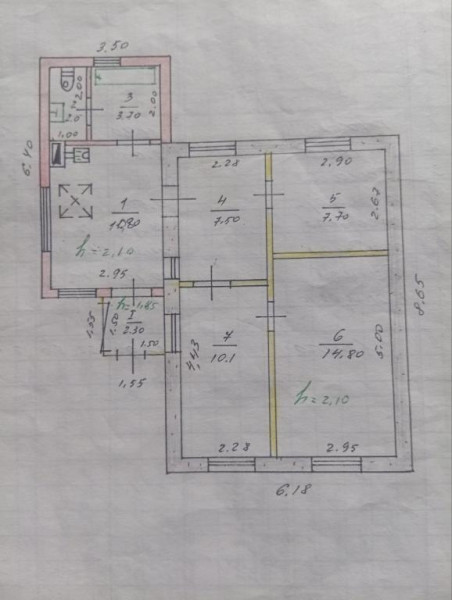 3.50
2.00
3
3.70
2.00
2
2.0
1.00
6.40
2.28
2.90
1
4
7.50
5
7.70
2.63
h=2,10
2.95
h=1,85
8.65
I
2.30
1.50
1.55
1.50
1,55
4,43
7
10.1
6
14,80
5.00
h=2,10
2.28
2.95
6.18